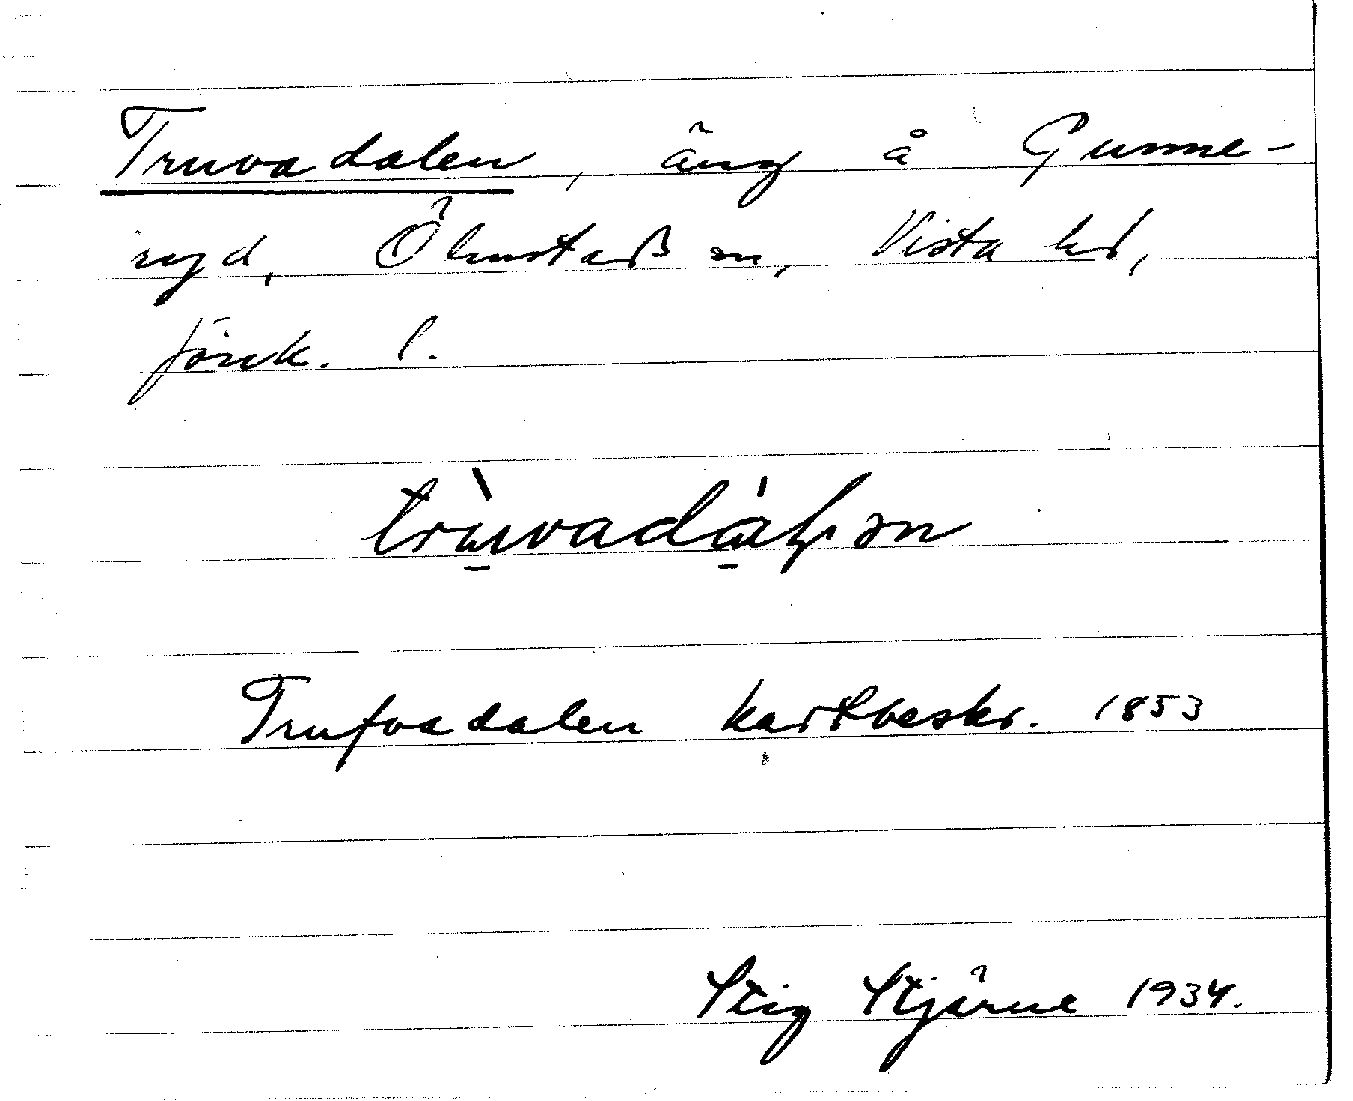 Truvadalen, äng å Gunne-
ryd, Ölmstads sn, Vista hd,
Jönk. l.
Trufvadalen kartbeskr. 1853
Stig Stjärne 1934.